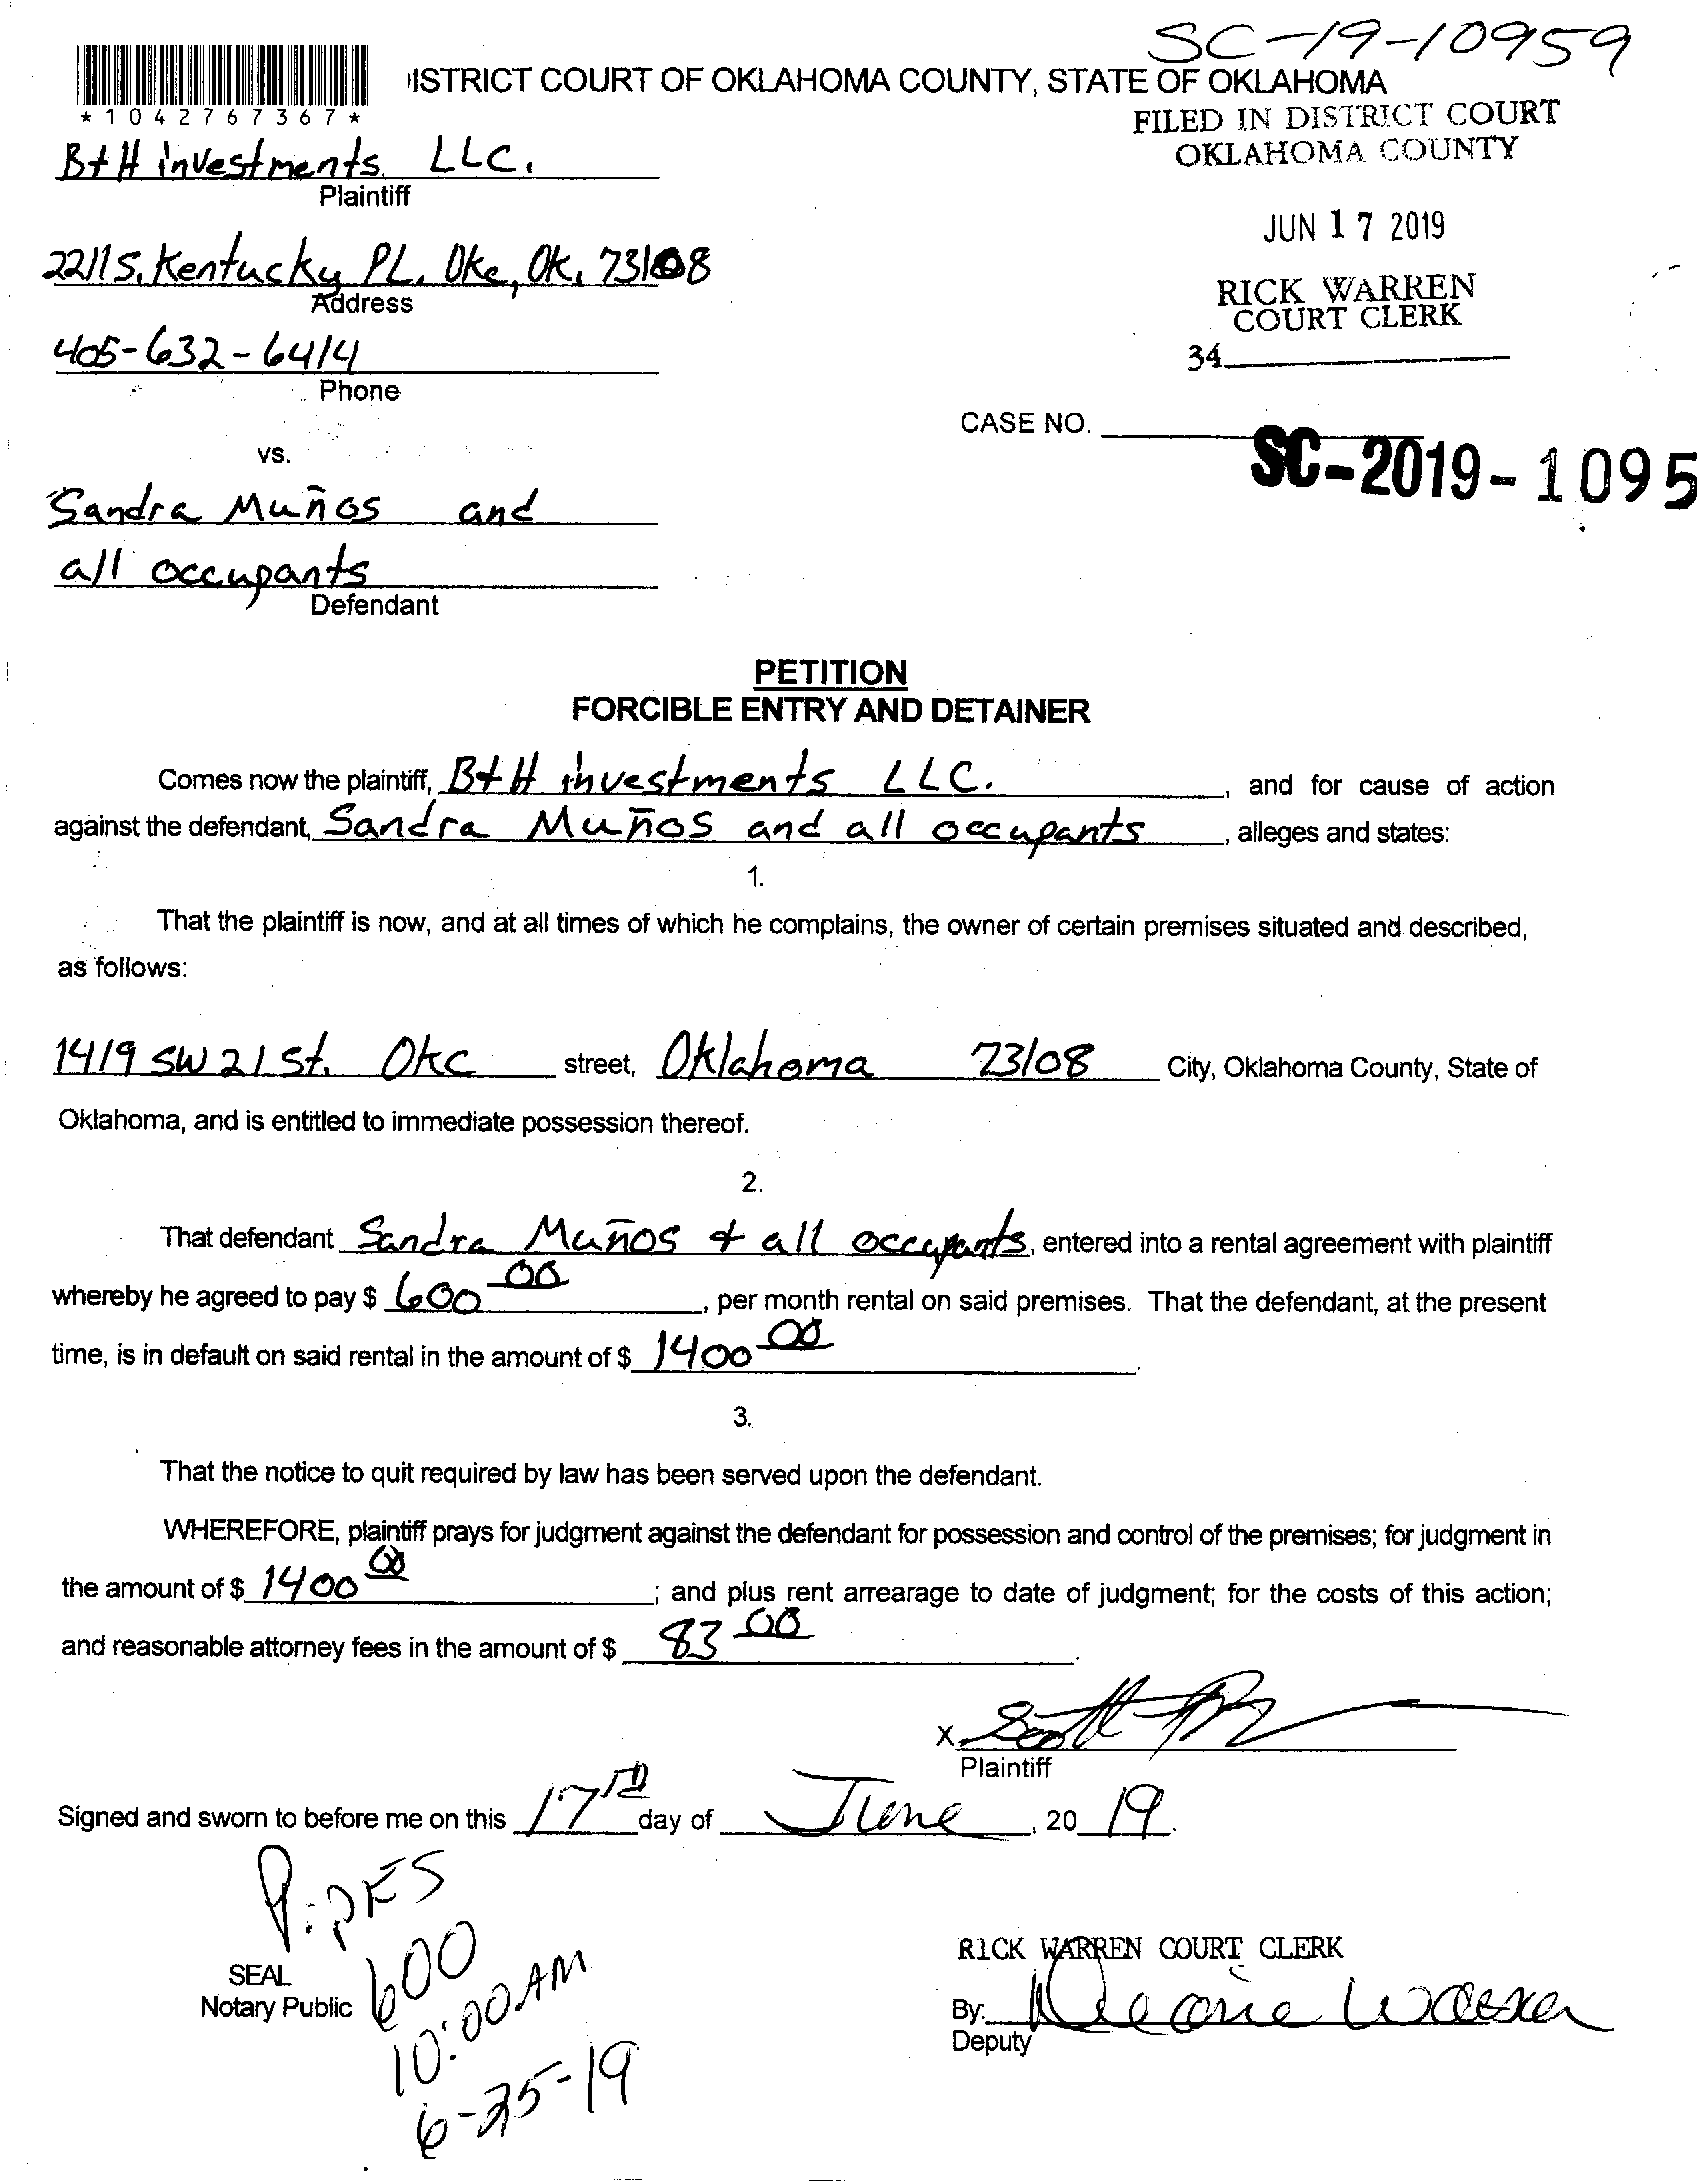 SC-19-10959
ISTRICT COURT OF OKLAHOMA COUNTY, STATE OF OKLAHOMA
*1042767367*
FILED IN DISTRICT COURT
OKLAHOMA COUNTY
B+H investments LLC.
Plaintiff
JUN 17 2019
2211 S. Kentucky PL. Okc, Ok. 73108
Address
RICK WARREN
COURT CLERK
405-632-6414
34
Phone
CASE NO.
SC-2019-1095
vs.
Sandra Muños and
all occupants
Defendant
PETITION
FORCIBLE ENTRY AND DETAINER
Comes now the plaintiff, B+H investments LLC. , and for cause of action
against the defendant, Sandra Muños and all occupants , alleges and states:
1.
That the plaintiff is now, and at all times of which he complains, the owner of certain premises situated and described,
as follows:
1419 SW 21 St. Okc street, Oklahoma 73108 City, Oklahoma County, State of
Oklahoma, and is entitled to immediate possession thereof.
2.
That defendant Sandra Muños + all occupants, entered into a rental agreement with plaintiff
whereby he agreed to pay $ 600 00 , per month rental on said premises. That the defendant, at the present
time, is in default on said rental in the amount of $ 1400 00 .
3.
That the notice to quit required by law has been served upon the defendant.
WHEREFORE, plaintiff prays for judgment against the defendant for possession and control of the premises; for judgment in
the amount of $ 1400 00 ; and plus rent arrearage to date of judgment; for the costs of this action;
and reasonable attorney fees in the amount of $ 83 00 .
X Scott
Plaintiff
Signed and sworn to before me on this 17th day of June , 20 19.
P:pes
600
10:00 AM
6-25-19
SEAL
Notary Public
RICK WARREN COURT CLERK
By:
Deputy